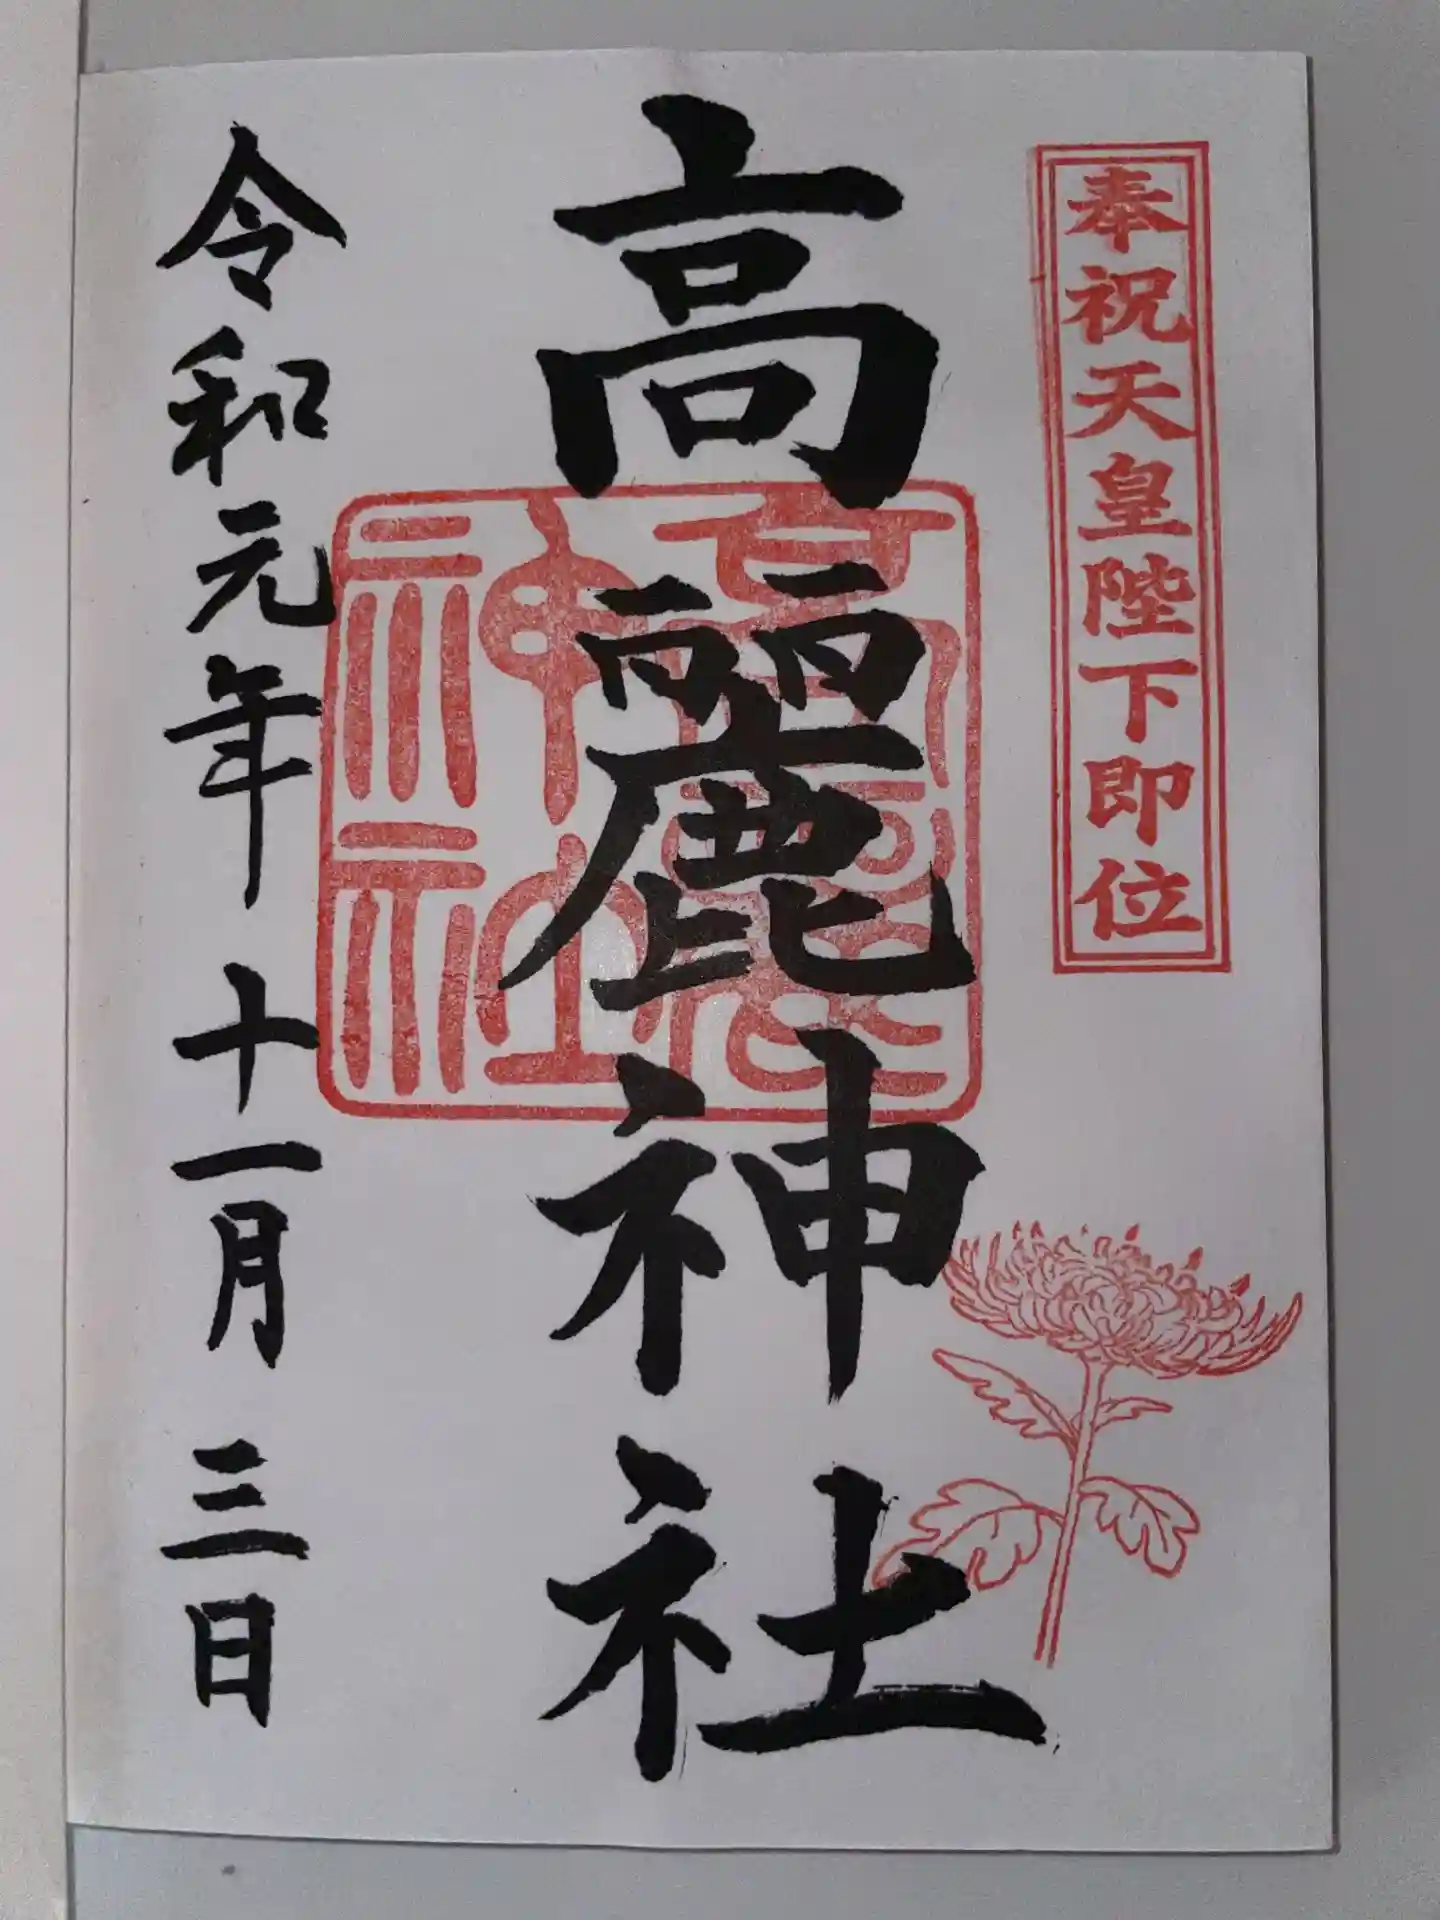 奉祝天皇陛下即位
高麗神社
高麗神社
令和元年十一月三日